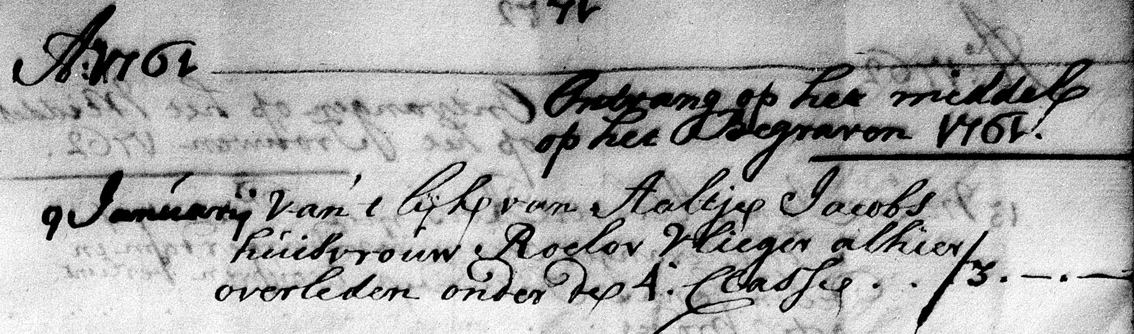 A: 1761
Ontvang op het middel
op het Begraven 1761.
9 Januarij van 't lijk van Aaltje Jacobs
huisvrouw Roelof Vlieger alhier
overleden onder de 4. Classe . . ƒ 3. —. —